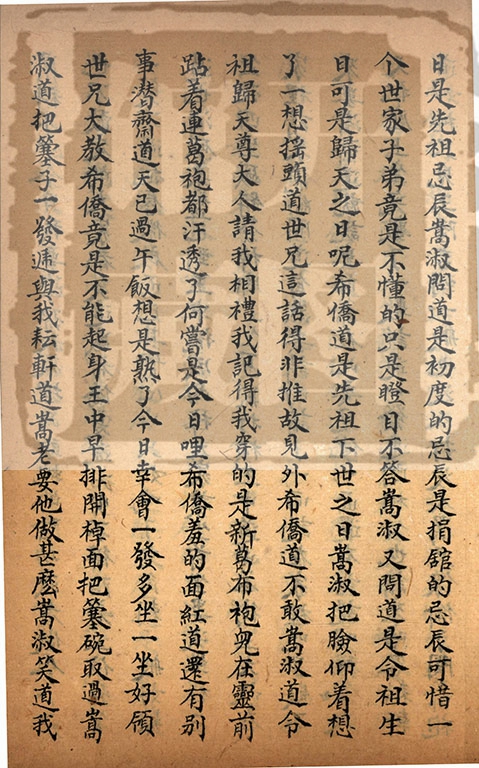 日是先祖忌辰嵩淑問道是初度的忌辰是捐舘的忌辰可惜一
个世家子弟竟是不懂的只是瞪目不答嵩淑又問道是令祖生
日可是歸天之日呢希僑道是先祖下世之日嵩淑把臉仰着想
了一想摇頭道世兄這話得非推故見外希僑道不敢嵩淑道令
祖歸天尊大人請我相禮我記得我穿的是新葛布袍兒在靈前
跕着連葛袍都汗透了何嘗是今日哩希僑羞的面紅道還有别
事潜齋道天已過午飯想是熟了今日幸會一發多坐一坐好領
世兄大教希僑竟是不能起身王中早排開棹面把簺碗取過嵩
淑道把簺子一發逓與我耘軒道嵩老要他做甚麽嵩淑笑道我